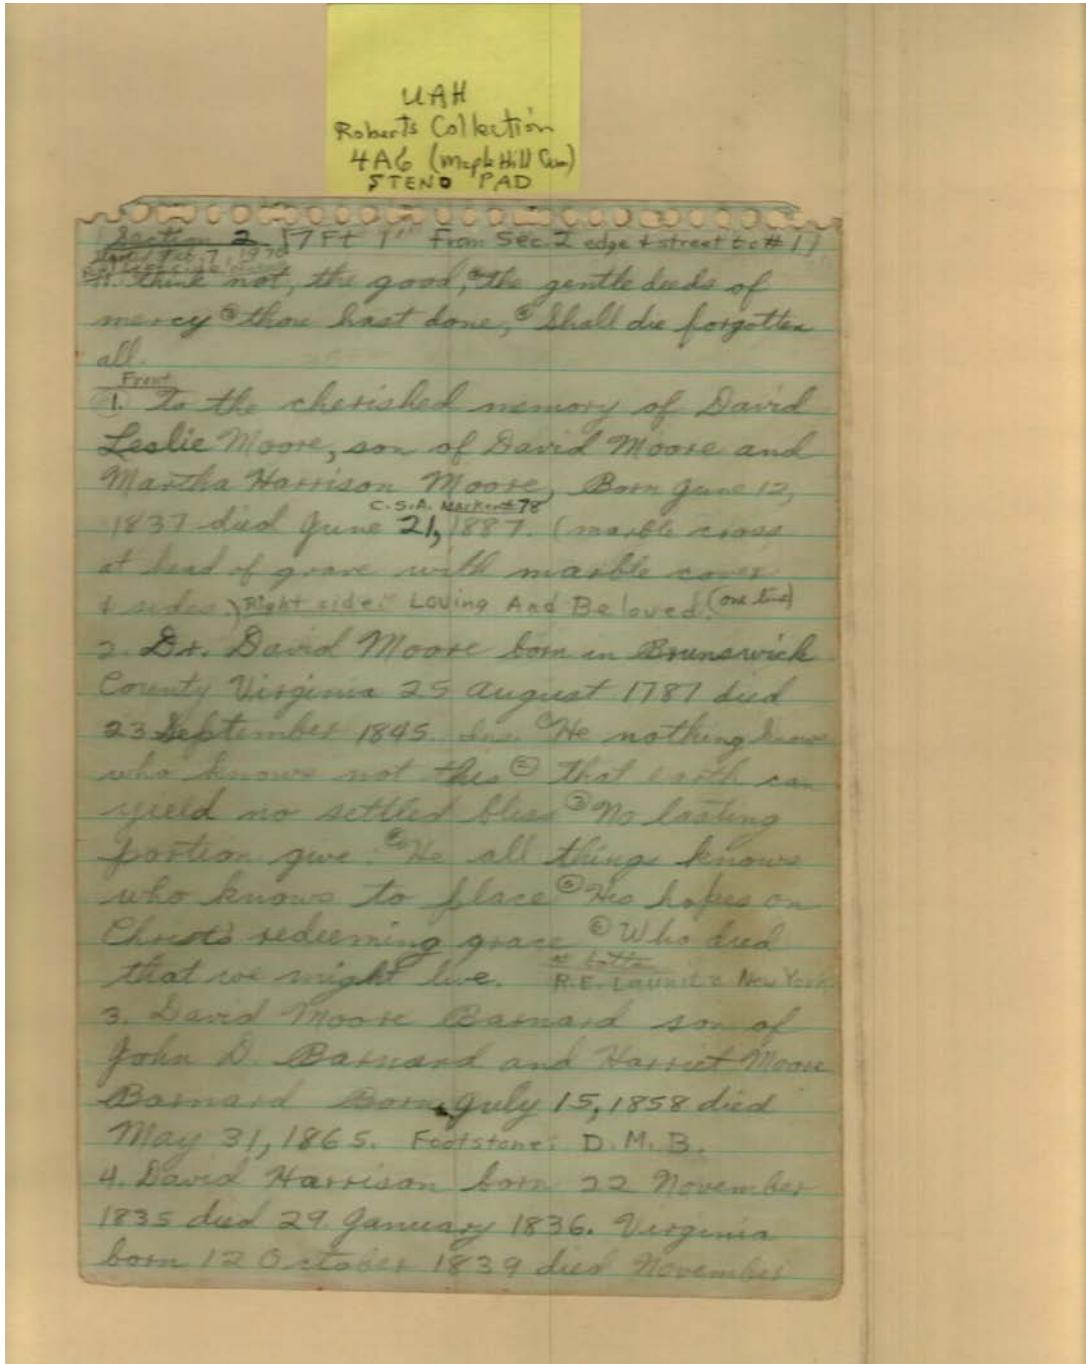 UAH
Roberts Collection
4A6 (Maple Hill Cem)
STENO PAD
Section 2 17 Ft 1" From Sec. 2 edge & street to # 1)
Feb. 7, 1970
think not, the good, the gentle deeds of
mercy thou hast done, Shall die forgotten
all.
Front
1. To the cherished memory of David
Leslie Moore, son of David Moore and
Martha Harrison Moore, Born June 12,
C.S.A. Marker #78
1837 died June 21, 1887. (marble cross
at head of grave with marble cover
& sides.) Right side: Loving And Beloved. (one line)
2. Dr. David Moore born in Brunswick
County Virginia 25 August 1787 died
23 September 1845. Ins. He nothing knows
who knows not this ② That earth can
yield no settled bliss ③ No lasting
portion give. ④ He all things knows
who knows to place ⑤ His hopes on
Christ's redeeming grace ⑥ Who died
that we might live. at bottom
R.E. Launitz New York
3. David Moore Barnard son of
John D. Barnard and Harriet Moore
Barnard Born July 15, 1858 died
May 31, 1865. Footstone: D.M.B.
4. David Harrison born 22 November
1835 died 29 January 1836. Virginia
born 12 October 1839 died November